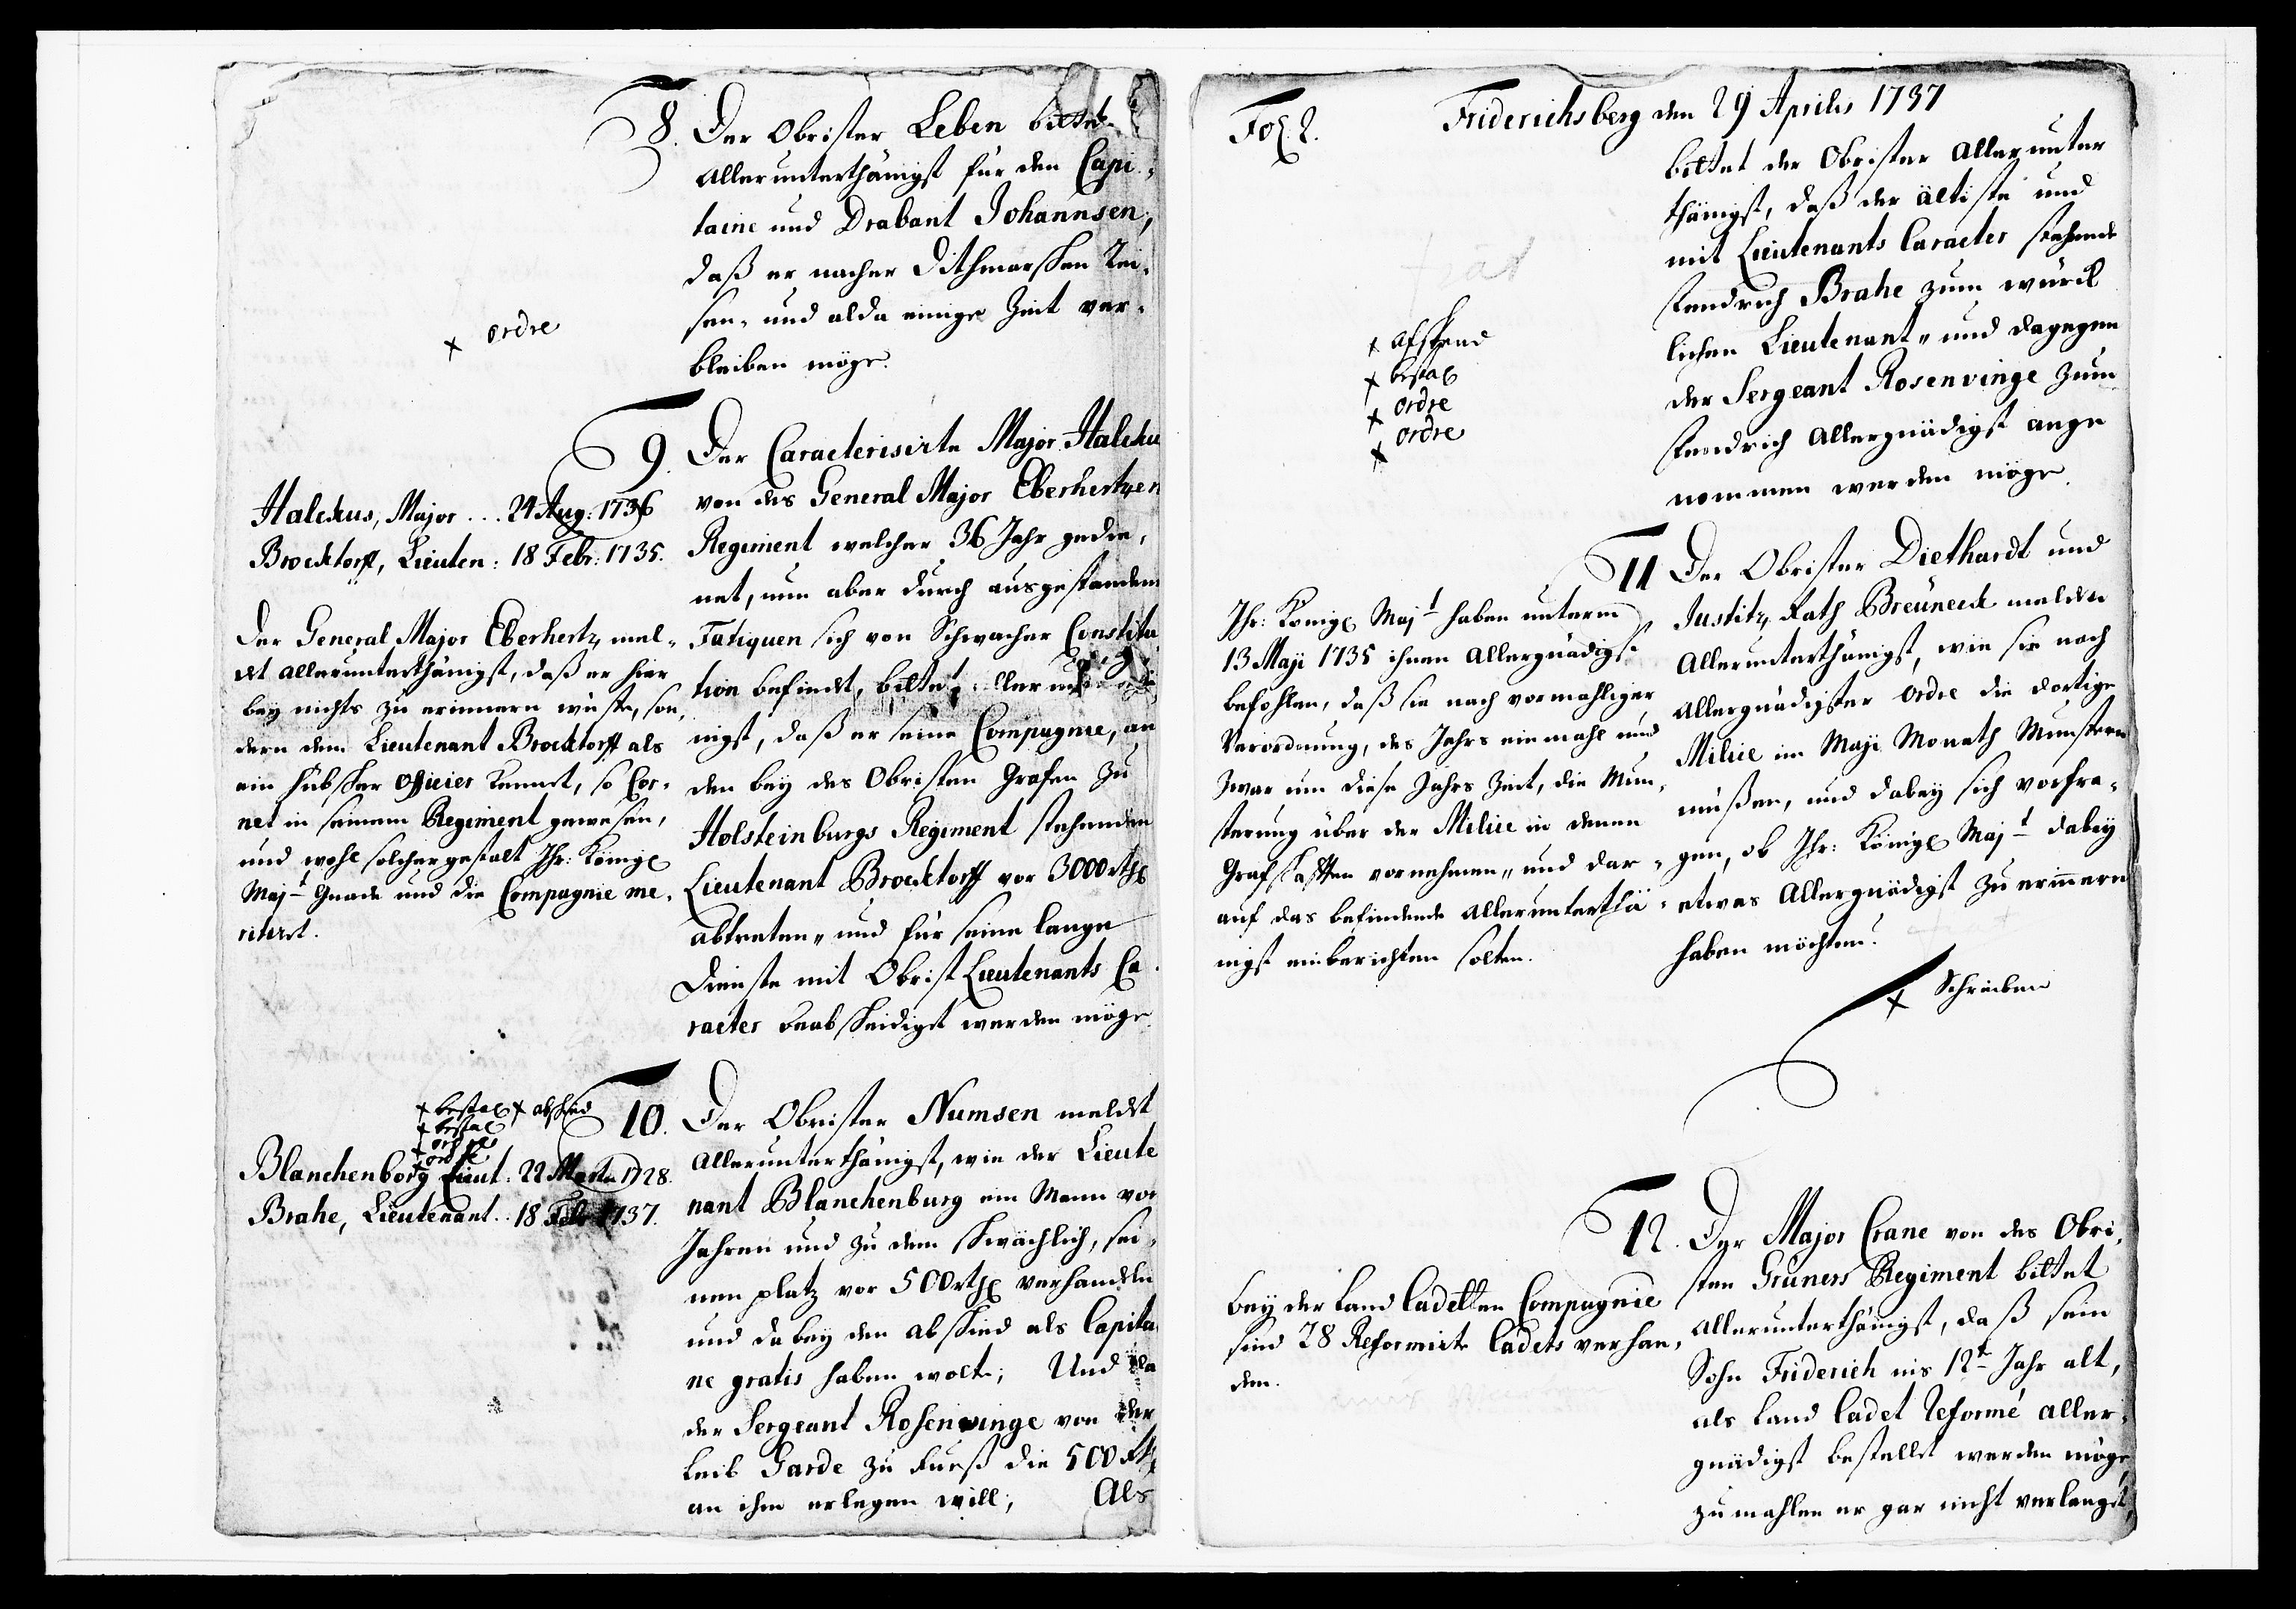 8. Der Obrister Leben bittet
Allerunterthänigst für den Capi-
taine und Drabant Johannsen,
daß er nacher Dithmarschen Rei-
sen, und alda einige Zeit ver-
bleiben möge.
x ordre
9. Der Caracterisirte Major Halckus
von des General Major Eberhertzen
Regiment welcher 36 Jahr gedie-
net, nun aber durch ausgestandene
Fatiquen sich von Schwacher Constitu
tion befindet, bittet allerunterthä-
nigst, daß er seine Compagnie, an
den bey des Obristen Grafen zu
Holsteinburgs Regiment stehenden
Lieutenant Brocktorff vor 3000 rthl
abtreten, und für seine lange
Dienste mit Obrist Lieutenants Ca-
racter beabscheidiget werden möge
Halckus, Major ... 24 Aug: 1736
Brocktorff, Lieuten: 18 Febr: 1735.
Der General Major Eberhertz mel-
det allerunterthänigst, daß er hier
bey nichts zu erinnern wüste, son-
dern dem Lieutenant Brocktorff als
ein hübscher Officier kennet, so Cor-
net in seinem Regiment gewesen,
und wohl solchergestalt Ihr: Königl
Majt Gnade und die Compagnie me-
ritiret.
x bestal x abscheid
x bestal
x ordre
x ordre
10. Der Obrister Numsen meldet
Allerunterthänigst, wie der Lieute
nant Blanckenburg ein Mann von
Jahren und zu dem schwächlich, sei-
nen platz vor 500 rthl verhandeln
und dabey den abschied als Capitai
ne gratis haben wolte; Und da
der Sergeant Rosenvinge von der
Leib Garde zu Fueß die 500 rthl
an ihm erlegen will; Als
Blanchenborg Lieut: 22 Martii 1728.
Brahe, Lieutenant.. 18 Febr 1737.
Fol. 2. Friderichsberg den 29 Aprilis 1737
bittet der Obrister Allerunter
thänigst, daß der ältiste und
mit Lieutenants Caracter stehende
Fendrich Brahe zum würck
lichen Lieutenant, und dagegen
der Sergeant Rosenvinge zum
Fendrich Allergnädigst ange
nommen werden möge.
x Afskeed
x bestal
x ordre
x ordre
11 Der Obrister Diethardt und
Justitz Rath Breüneck melden
Allerunterthänigst, wie sie nach
Allergnädigster Ordre die dortige
Milice im Maji Monath Munstern
müßen, und dabey sich vorfra-
gen, ob Ihr: Königl Majt dabey
etwas Allergnädigst zu erinnern
haben möchten?
x Schreiben
Ihr: Königl Majt haben unterm
13 Maji 1735 ihnen Allergnädigst
befohlen, daß sie nach vormahliger
Verordnung, des Jahrs einmahl und
zwar um diese Jahrs Zeit, die Mun-
sterung über der Milice in denen
Grafschafften vornehmen, und dar-
auf das befindende Allerunterthä-
nigst einberichten solten.
12. Der Major Crane von des Obri-
sten Grüners Regiment bittet
Allerunterthänigst, daß sein
Sohn Friderich ins 12te Jahr alt,
als Land Cadet Reformé Aller-
gnädigst bestellet werden möge,
zumahlen er gar nicht verlanget,
Bey der Land Cadetten Compagnie
sind 28 Reformirte Cadets verhan-
den.